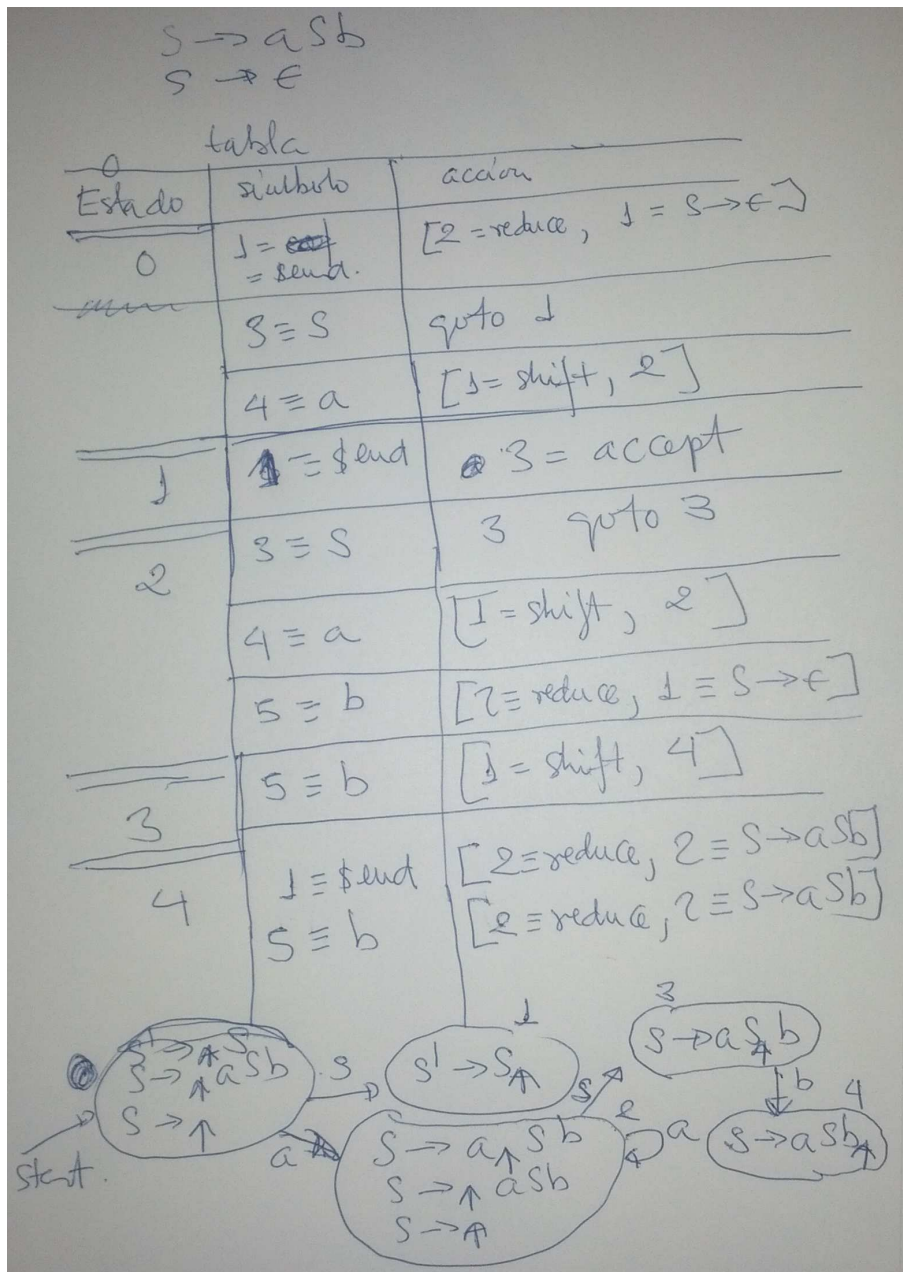 S → a S b
S → ϵ
tabla
Estado símbolo acción
0 1 = = $end. [2 = reduce, 1 = S → ϵ]
3 ≡ S goto 1
4 ≡ a [1 = shift, 2]
1 1 ≡ $end 3 = accept
2 3 ≡ S 3 goto 3
4 ≡ a [1 = shift, 2]
5 ≡ b [2 ≡ reduce, 1 ≡ S → ϵ]
3 5 ≡ b [1 = shift, 4]
4 1 ≡ $end [2 ≡ reduce, 2 ≡ S → aSb]
5 ≡ b [2 ≡ reduce, 2 ≡ S → aSb]
0
S' → ↑ S
S → ↑ a S b
S → ↑
start.
S
a
1
S' → S ↑
2
S → a ↑ S b
S → ↑ a S b
S → ↑
a
S
3
S → a S ↑ b
b
4
S → a S b ↑